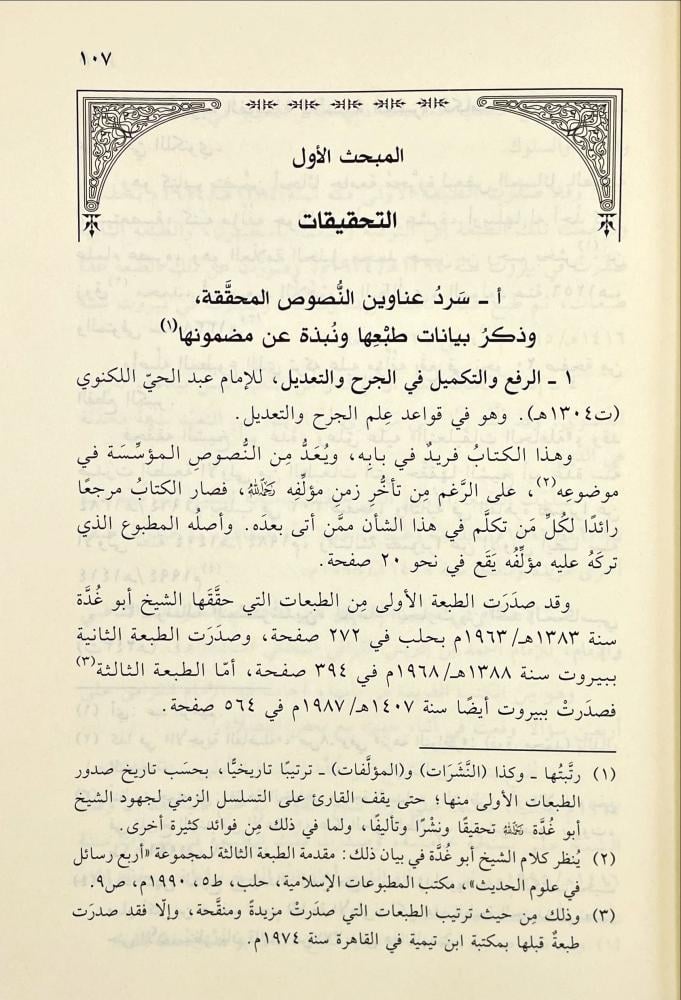 ١٠٧
المبحث الأول
التحقيقات
أ ـ سَردُ عناوين النُّصوص المحقَّقة،
وذكرُ بيانات طبْعِها ونُبذة عن مضمونها(١)
١ ـ الرفع والتكميل في الجرح والتعديل، للإمام عبد الحيّ اللكنوي
(ت١٣٠٤هـ). وهو في قواعد عِلم الجرح والتعديل.
وهذا الكتابُ فريدٌ في بابِه، ويُعَدُّ مِن النُّصوصِ المؤسِّسَة في
موضوعِه(٢)، على الرَّغم مِن تأخُّرِ زمنِ مؤلِّفِه رَحِمَهُ اللهُ، فصار الكتابُ مرجعًا
رائدًا لكُلِّ مَن تكلَّم في هذا الشأن ممَّن أتى بعدَه. وأصلُه المطبوع الذي
تركَهُ عليه مؤلِّفُه يَقَع في نحو ٢٠ صفحة.
وقد صدَرَت الطبعة الأولى مِن الطبعات التي حقَّقَها الشيخ أبو غُدَّة
سنة ١٣٨٣هـ/١٩٦٣م بحلب في ٢٧٢ صفحة، وصدَرَت الطبعة الثانية
ببيروت سنة ١٣٨٨هـ/١٩٦٨م في ٣٩٤ صفحة، أمّا الطبعة الثالثة(٣)
فصدَرتْ ببيروت أيضًا سنة ١٤٠٧هـ/١٩٨٧م في ٥٦٤ صفحة.
(١) رتَّبتُها ـ وكذا (النَّشَرَات) و(المؤلَّفات) ـ ترتيبًا تاريخيًّا، بحسَب تاريخ صدور
الطبعات الأولى منها؛ حتى يقف القارئ على التسلسل الزمني لجهود الشيخ
أبو غُدَّة رَحِمَهُ اللهُ تحقيقًا ونشْرًا وتأليفًا، ولما في ذلك مِن فوائد كثيرة أخرى.
(٢) يُنظر كلام الشيخ أبو غُدَّة في بيان ذلك: مقدمة الطبعة الثالثة لمجموعة «أربع رسائل
في علوم الحديث»، مكتب المطبوعات الإسلامية، حلب، ط٥، ١٩٩٠م، ص٩.
(٣) وذلك مِن حيث ترتيب الطبعات التي صدَرتْ مزيدةً ومنقَّحة، وإلّا فقد صدَرَت
طبعةٌ قبلها بمكتبة ابن تيمية في القاهرة سنة ١٩٧٤م.